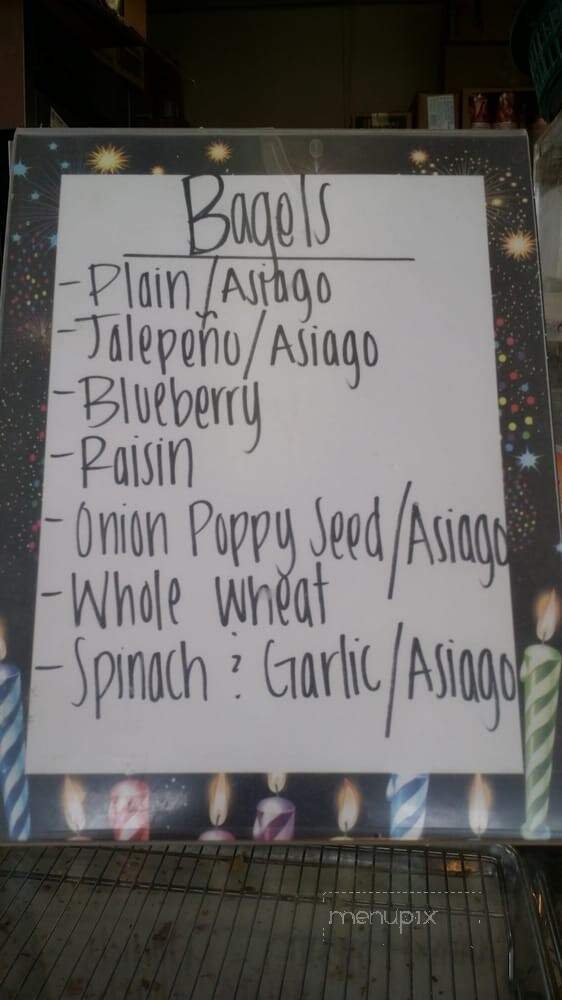 Bagels
- Plain/Asiago
- Jalepeño/Asiago
- Blueberry
- Raisin
- Onion Poppy Seed/Asiago
- Whole Wheat
- Spinach & Garlic/Asiago
menupix